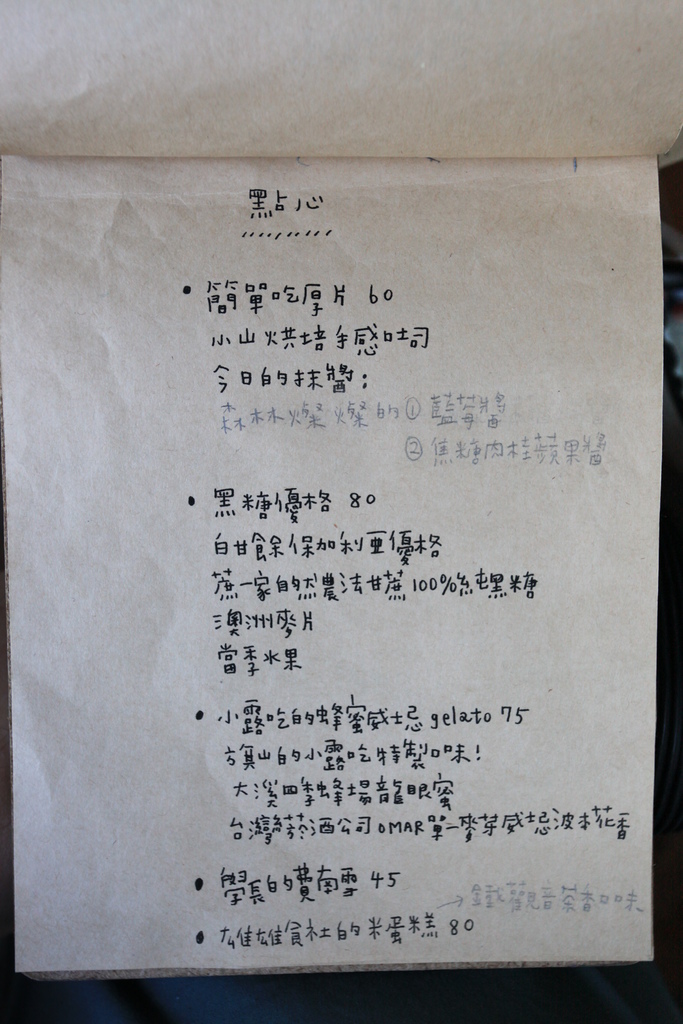 點心
簡單吃厚片 60
小山烘培手感吐司
今日的抹醬：
森林燦燦的 ① 藍莓醬
② 焦糖肉桂蘋果醬
黑糖優格 80
白甘餘保加利亞優格
蔗一家自然農法甘蔗100%純黑糖
澳洲麥片
當季水果
小露吃的蜂蜜威士忌 gelato 75
旗山的小露吃特製口味！
大溪四季蜂場龍眼蜜
台灣菸酒公司OMAR單一麥芽威士忌波本花香
學長的費南雪 45
雄雄食社的米蛋糕 80
→ 鐵觀音茶香口味